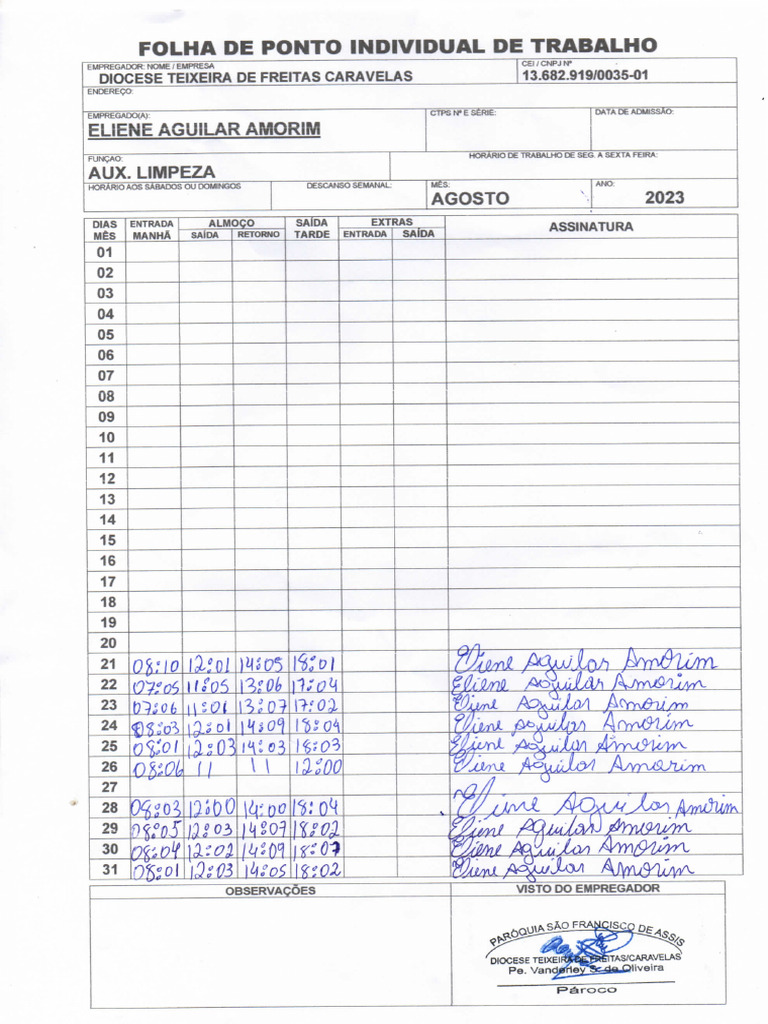 FOLHA DE PONTO INDIVIDUAL DE TRABALHO
EMPREGADOR: NOME / EMPRESA CEI / CNPJ Nº
DIOCESE TEIXEIRA DE FREITAS CARAVELAS 13.682.919/0035-01
ENDEREÇO:
EMPREGADO(A): CTPS Nº E SÉRIE: DATA DE ADMISSÃO:
ELIENE AGUILAR AMORIM
FUNÇAO: HORÁRIO DE TRABALHO DE SEG. A SEXTA FEIRA:
AUX. LIMPEZA
HORÁRIO AOS SÁBADOS OU DOMINGOS DESCANSO SEMANAL: MÊS: ANO:
AGOSTO 2023
DIAS MÊS ENTRADA MANHÃ ALMOÇO SAÍDA TARDE EXTRAS ASSINATURA
SAÍDA RETORNO ENTRADA SAÍDA
01
02
03
04
05
06
07
08
09
10
11
12
13
14
15
16
17
18
19
20
21 08:10 12:01 14:05 18:01 Eliene Aguilar Amorim
22 07:05 11:05 13:06 17:04 Eliene Aguilar Amorim
23 07:06 11:01 13:07 17:02 Eliene Aguilar Amorim
24 08:03 12:01 14:09 18:04 Eliene Aguilar Amorim
25 08:01 12:03 14:03 18:03 Eliene Aguilar Amorim
26 08:06 11 11 12:00 Eliene Aguilar Amorim
27
28 08:03 12:00 14:00 18:04 Eliene Aguilar Amorim
29 08:05 12:03 14:07 18:02 Eliene Aguilar Amorim
30 08:04 12:02 14:09 18:07 Eliene Aguilar Amorim
31 08:01 12:03 14:05 18:02 Eliene Aguilar Amorim
OBSERVAÇÕES VISTO DO EMPREGADOR
PARÓQUIA SÃO FRANCISCO DE ASSIS
DIOCESE TEIXEIRA DE FREITAS/CARAVELAS
Pe. Vanderley S. de Oliveira
Pároco